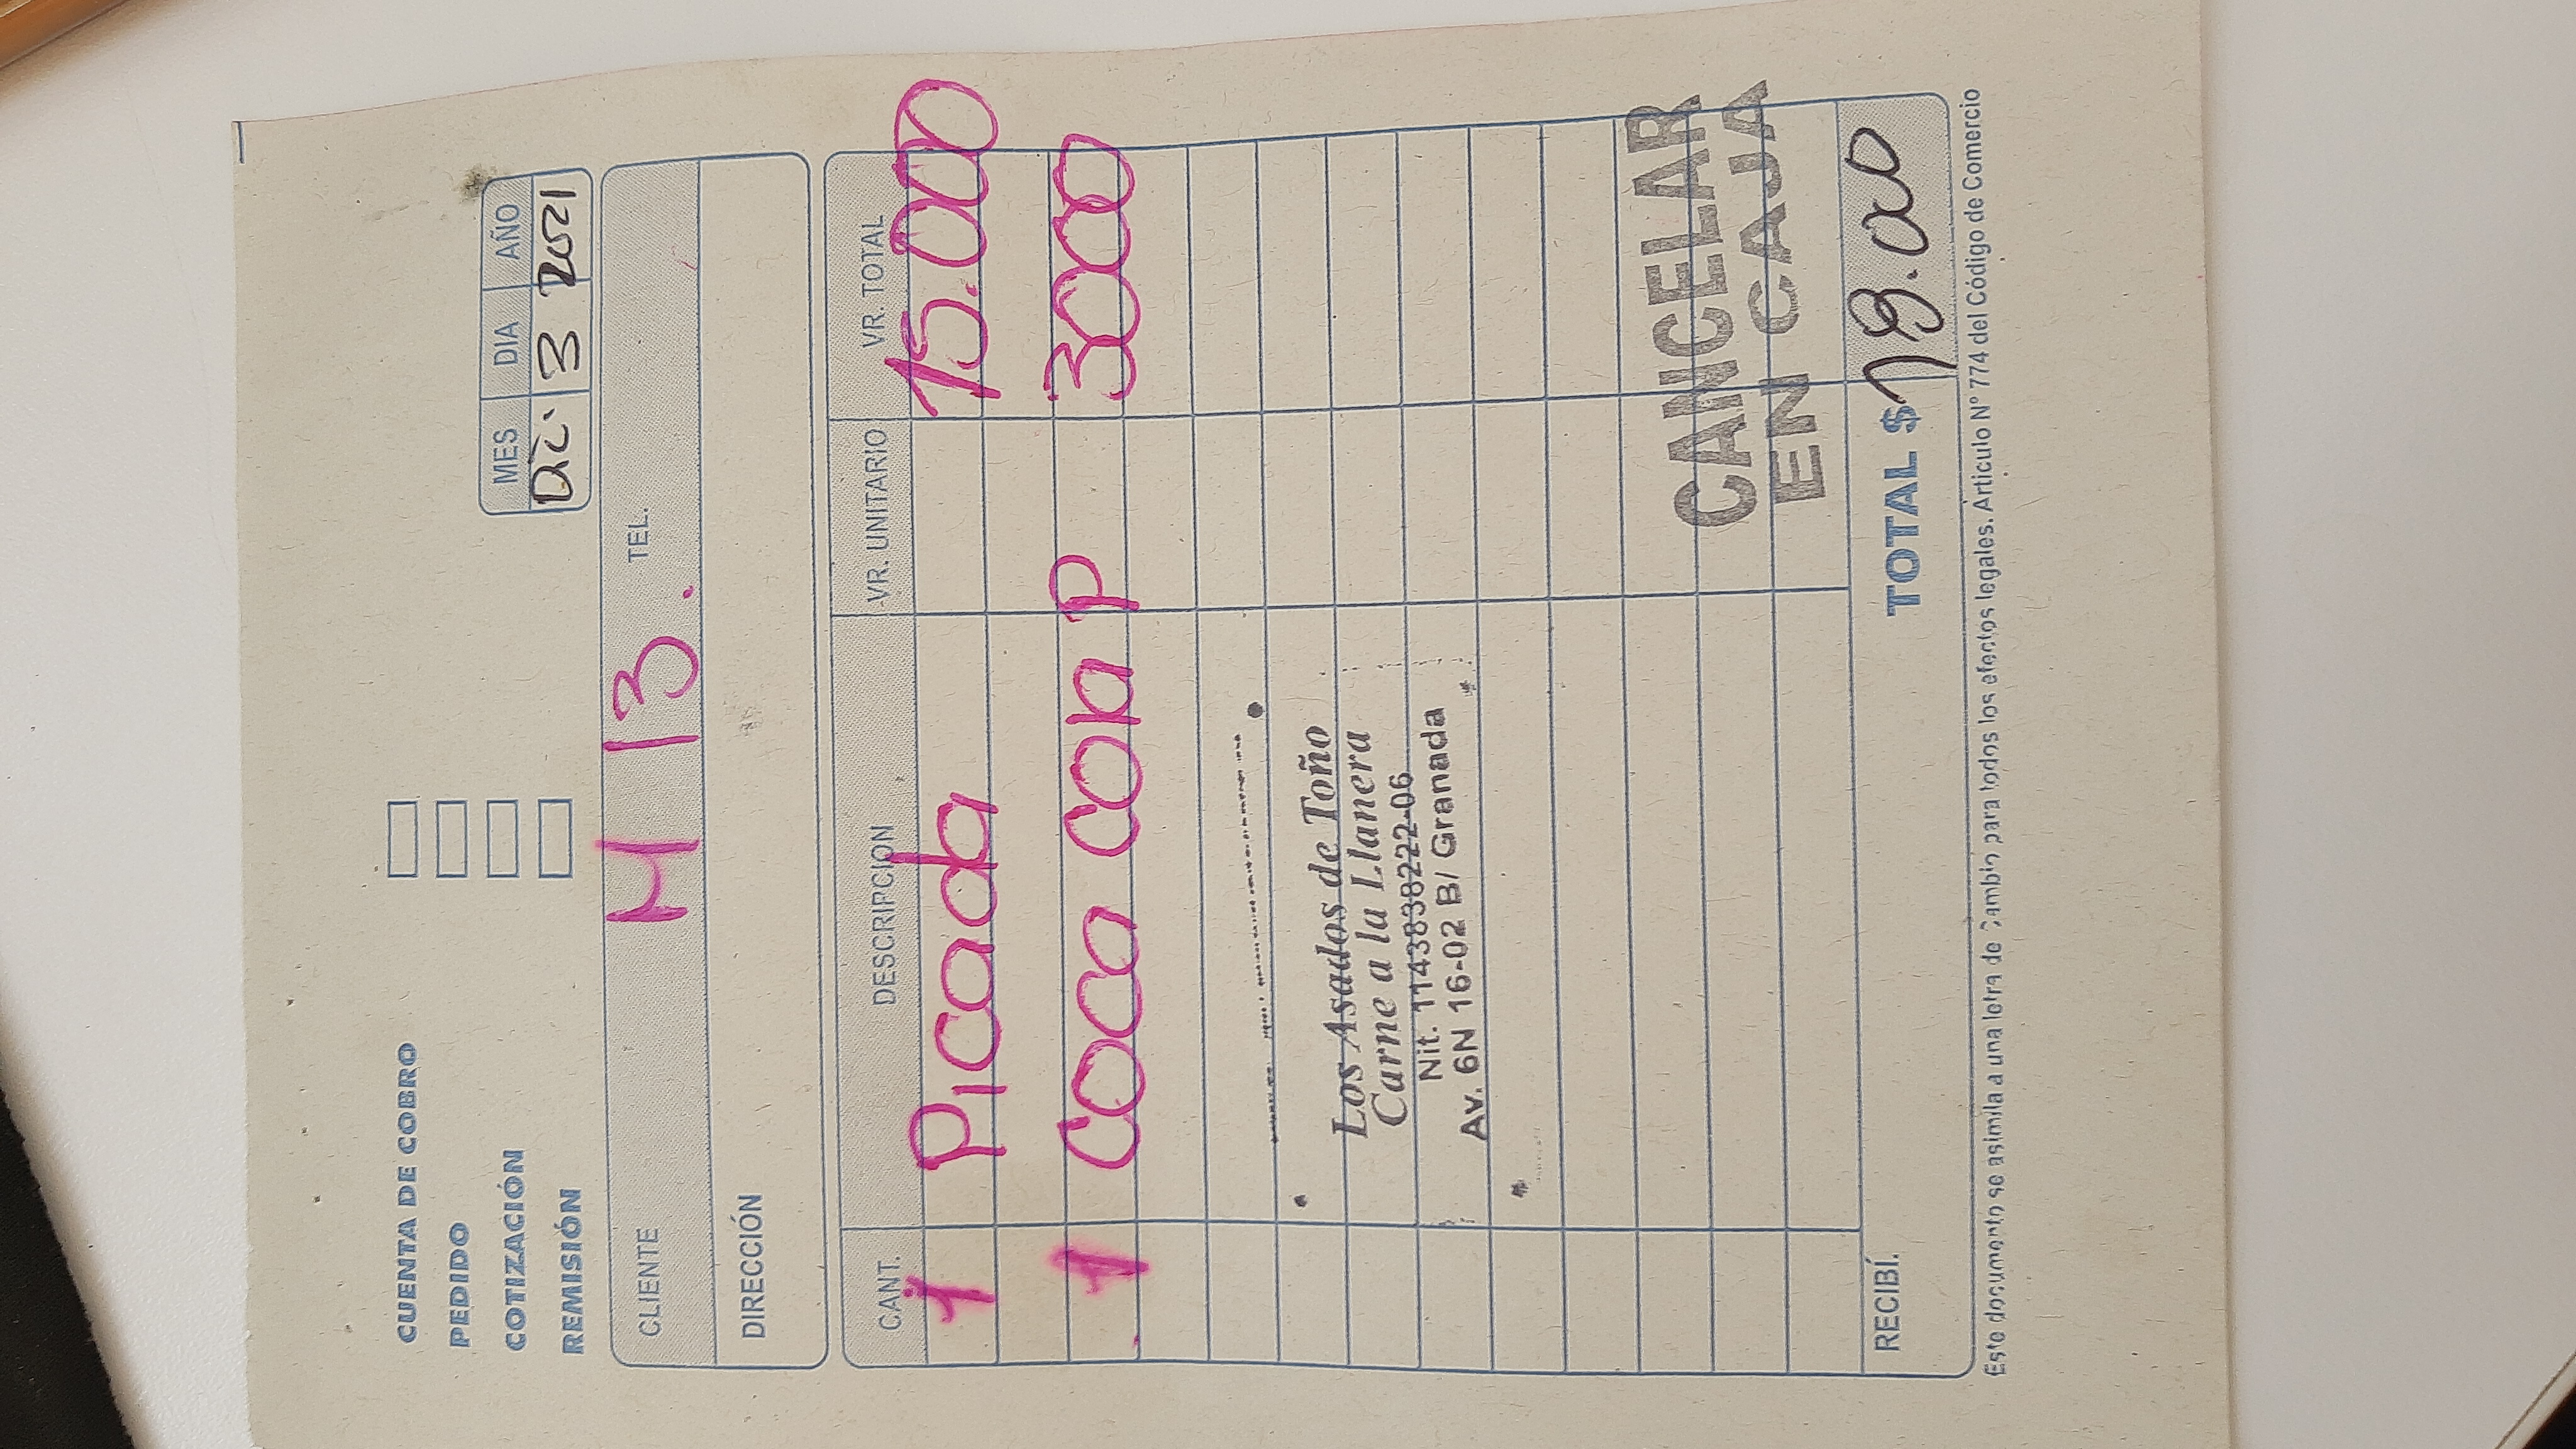 CUENTA DE COBRO
PEDIDO
COTIZACIÓN
REMISIÓN
MES DIA AÑO
Dic 3 2021
CLIENTE M 13. TEL.
DIRECCIÓN
CANT. DESCRIPCION VR. UNITARIO VR. TOTAL
1 Picada 15.000
1 Coca cola P 3000
Los Asados de Toño
Carne a la Llanera
Nit. 1143838222-06
Av. 6N 16-02 B/ Granada
CANCELAR
EN CAJA
RECIBÍ. TOTAL $ 18.000
Este documento se asimila a una letra de Cambio para todos los efectos legales. Articulo N° 774 del Código de Comercio